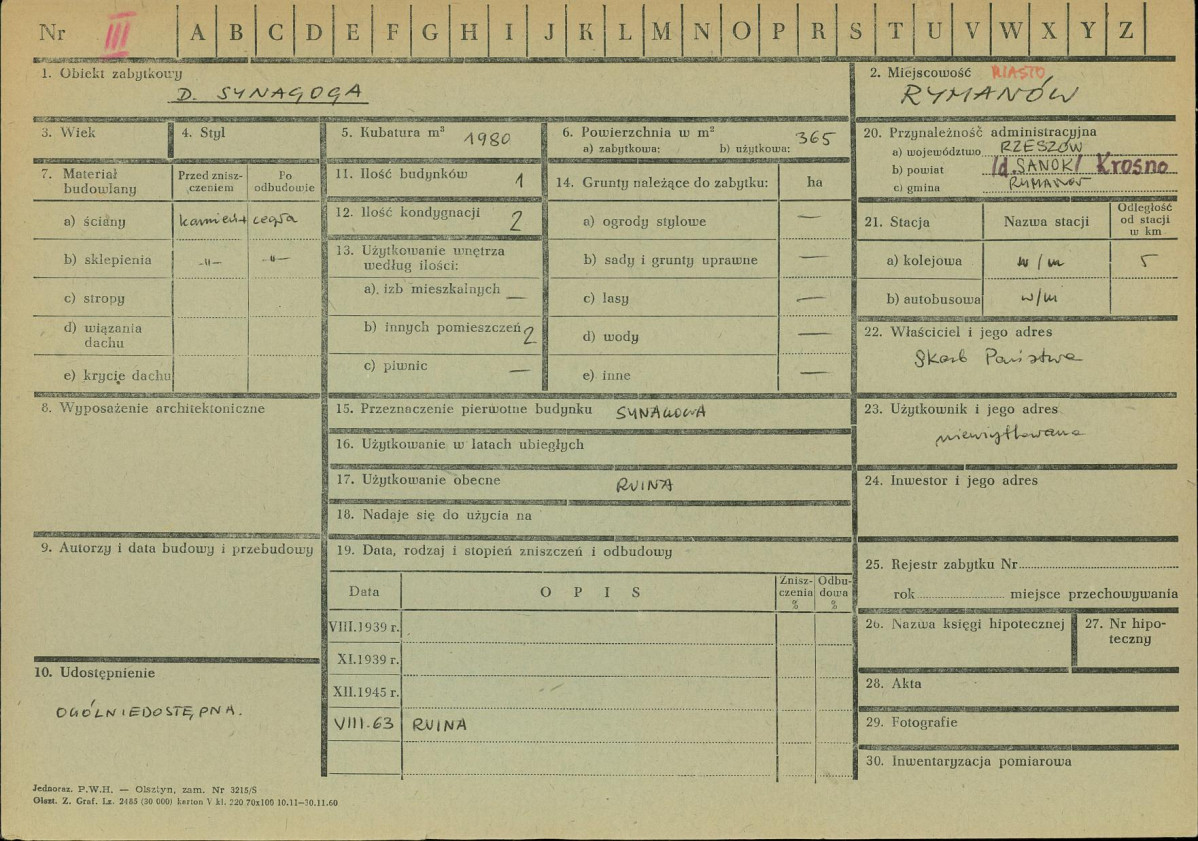 Nr III A B C D E F G H I J K L M N O P R S T U V W X Y Z
1. Obiekt zabytkowy
D. SYNAGOGA
2. Miejscowość MIASTO
RYMANÓW
3. Wiek
4. Styl
5. Kubatura m³ 1980
6. Powierzchnia w m²
a) zabytkowa: b) użytkowa: 365
7. Materiał budowlany
Przed znisz-
czeniem
Po
odbudowie
a) ściany kamień + cegła
b) sklepienia -„- -„-
c) stropy
d) wiązania
dachu
e) krycie dachu
8. Wyposażenie architektoniczne
9. Autorzy i data budowy i przebudowy
10. Udostępnienie
OGÓLNIEDOSTĘPNA.
11. Ilość budynków 1
12. Ilość kondygnacji 2
13. Użytkowanie wnętrza
według ilości:
a) izb mieszkalnych —
b) innych pomieszczeń 2
c) piwnic —
14. Grunty należące do zabytku: ha
a) ogrody stylowe —
b) sady i grunty uprawne —
c) lasy —
d) wody —
e) inne —
15. Przeznaczenie pierwotne budynku SYNAGOGA
16. Użytkowanie w latach ubiegłych
17. Użytkowanie obecne RUINA
18. Nadaje się do użycia na
19. Data, rodzaj i stopień zniszczeń i odbudowy
Data OPIS Znisz-
czenia
% Odbu-
dowa
%
VIII.1939 r.
XI.1939 r.
XII.1945 r.
VIII.63 RUINA
20. Przynależność administracyjna
a) województwo RZESZÓW
b) powiat /d. SANOK/ Krosno
c) gmina RYMANÓW
21. Stacja Nazwa stacji Odległość
od stacji
w km
a) kolejowa w/m 5
b) autobusowa w/m
22. Właściciel i jego adres
Skarb Państwa
23. Użytkownik i jego adres
nieużytkowana
24. Inwestor i jego adres
25. Rejestr zabytku Nr
rok miejsce przechowywania
26. Nazwa księgi hipotecznej
27. Nr hipo-
teczny
28. Akta
29. Fotografie
30. Inwentaryzacja pomiarowa
Jednoraz. P.W.H. — Olsztyn, zam. Nr 3215/S
Olszt. Z. Graf. Lz. 2485 (30 000) karton V kl. 220 70x100 10.11—30.11.60